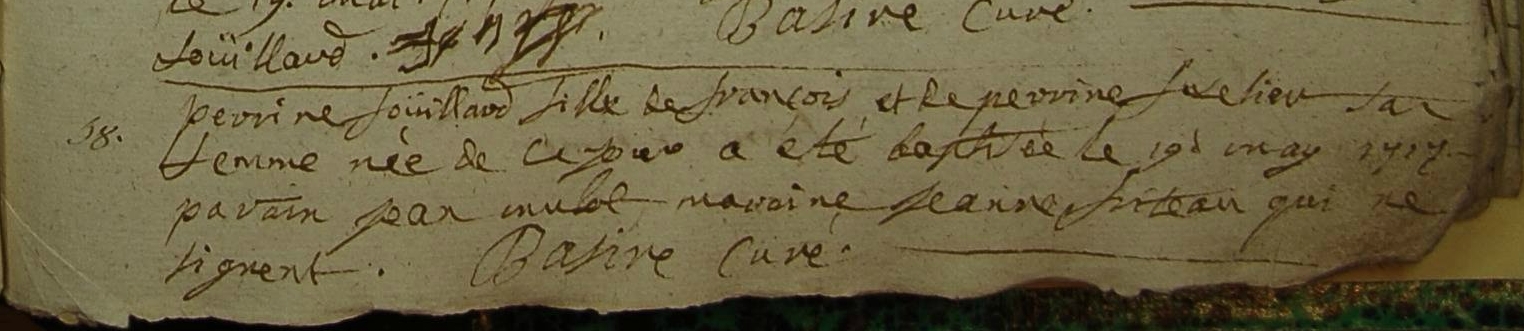 le 19.
foüillard. Basire Curé.
58.
perrine foüillard fille de françois et de perrine sa
femme née de ce jour a été baptisée le 19e may 1717
parain jean mulot maraine jeanne friteau qui ne
signent. Basire Curé.